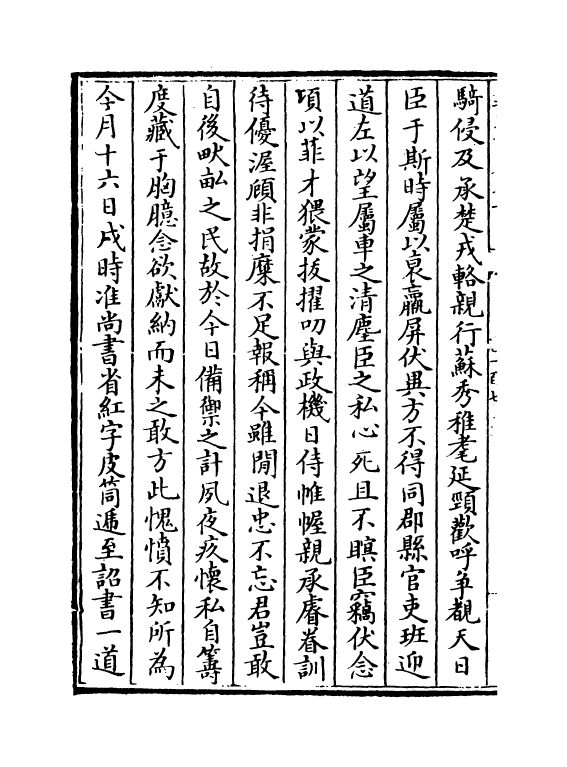 騎侵及承楚戎輅親行蘇秀稚耄延頸歡呼争覩天日
臣于斯時屬以衰羸屏伏異方不得同郡縣官吏班迎
道左以望屬車之清塵臣之私心死且不瞑臣竊伏念
頃以菲才猥蒙拔擢叨與政機日侍帷幄親承睿眷訓
待優渥顧非捐糜不足報稱今雖閒退忠不忘君豈敢
自後畎畝之民故於今日備禦之計夙夜疚懷私自籌
度藏于胸臆念欲獻納而未之敢方此愧憤不知所為
今月十六日戌時准尚書省紅字皮筒遞至詔書一道